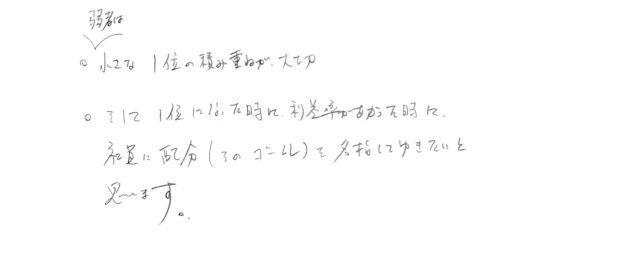 弱者は
○ 小さな 1位の積み重ねが、大切
○ そして 1位になった時に、利益率が高かった時に、
社員に配分(そのゴール)を 名指してゆきたいと
思います。